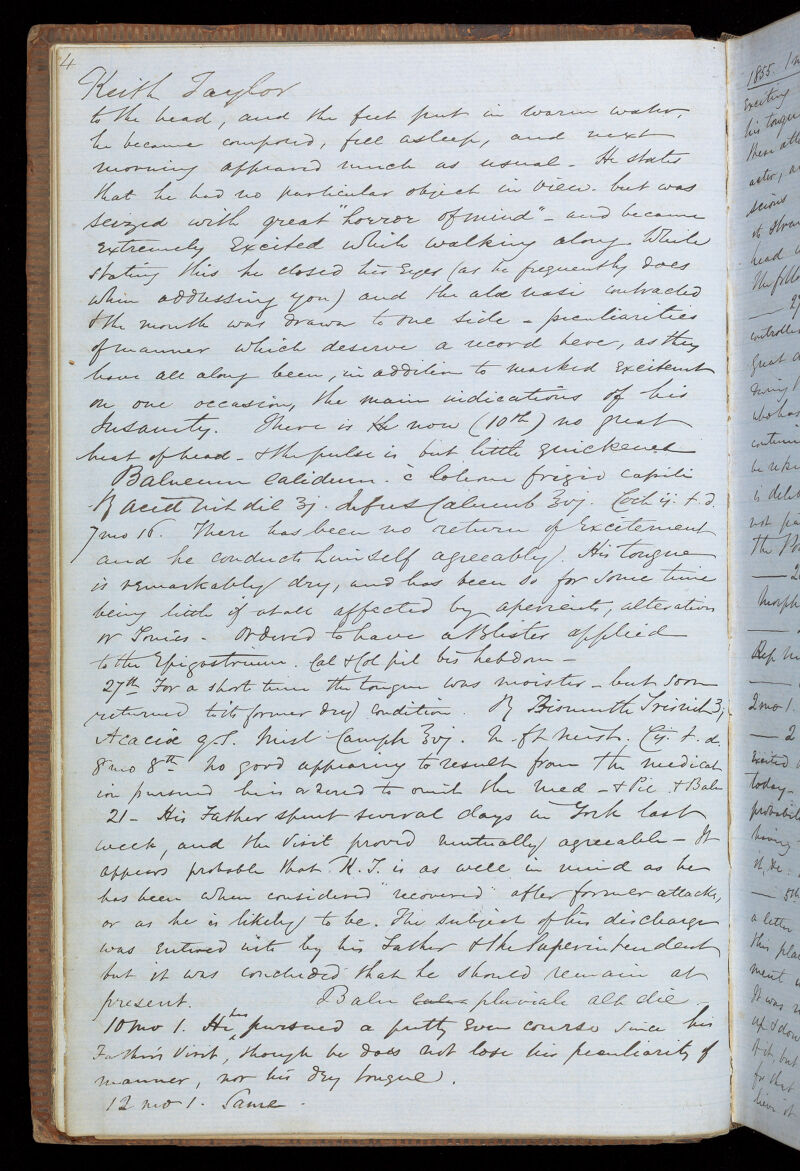 4
Keith Taylor
to the head, and the feet put in warm water,
he became composed, fell asleep, and next
morning appeared much as usual - He states
that he had no particular object in view. but was
seized with great "horror of mind" - and became
extremely excited while walking along. While
stating this he closed his eyes (as he frequently does
when addressing you) and the alæ nasi contracted
& the mouth was drawn to one side - peculiarities
of manner which deserve a record here, as they
have all along been, in addition to marked excitemt
on one occasion, the main indications of his
Insanity. There is now (10th) no great
heat of head - & the pulse is but little quickened
Balneum calidum. c̄ lotione frigid capiti
℞ Acid Nit dil ʒj. Infus Calumb ℥vj. Coch ij. t. d.
7 mo 16. There has been no return of excitement
and he conducts himself agreeably. His tongue
is remarkably dry, and has been so for some time
being little if at all affected by aperients, alteratives
or Tonics - Ordered to have a Blister applied
to the Epigastrium. Cal & Col pil bis hebdom -
27th For a short time the tongue was moister - but soon
returned to its former dry condition. ℞ Bismuth Trisnit ʒj
Acaciæ q.s. Mist Camph ℥vj. M. ft mist. Cij. t. d.
8 mo 8th No good appearing to result from the medicat
ion pursued he is ordered to omit the med - & Pil & Baln
21 - His Father spent several days in York last
week, and the visit proved mutually agreeable - It
appears probable that K. T. is as well in mind as he
has been when considered "recovered" after former attacks,
or as he is likely to be. The subject of his discharge
was entered into by his Father & the Superintendent
but it was concluded that he should remain at
present. Baln pluviale alt die -
10 mo 1. He has pursued a pretty even course since his
Father's visit, though he does not lose his peculiarity of
manner, nor his dry tongue.
12 mo 1. Same -
1855.
Exciting
his tongue
scious
head
The foll
controlled
great
who has
Morph
Rep
2 mo 1.
Excited
today -
probabl
having -
a letter
this plac
ment
It was
up & down
for that